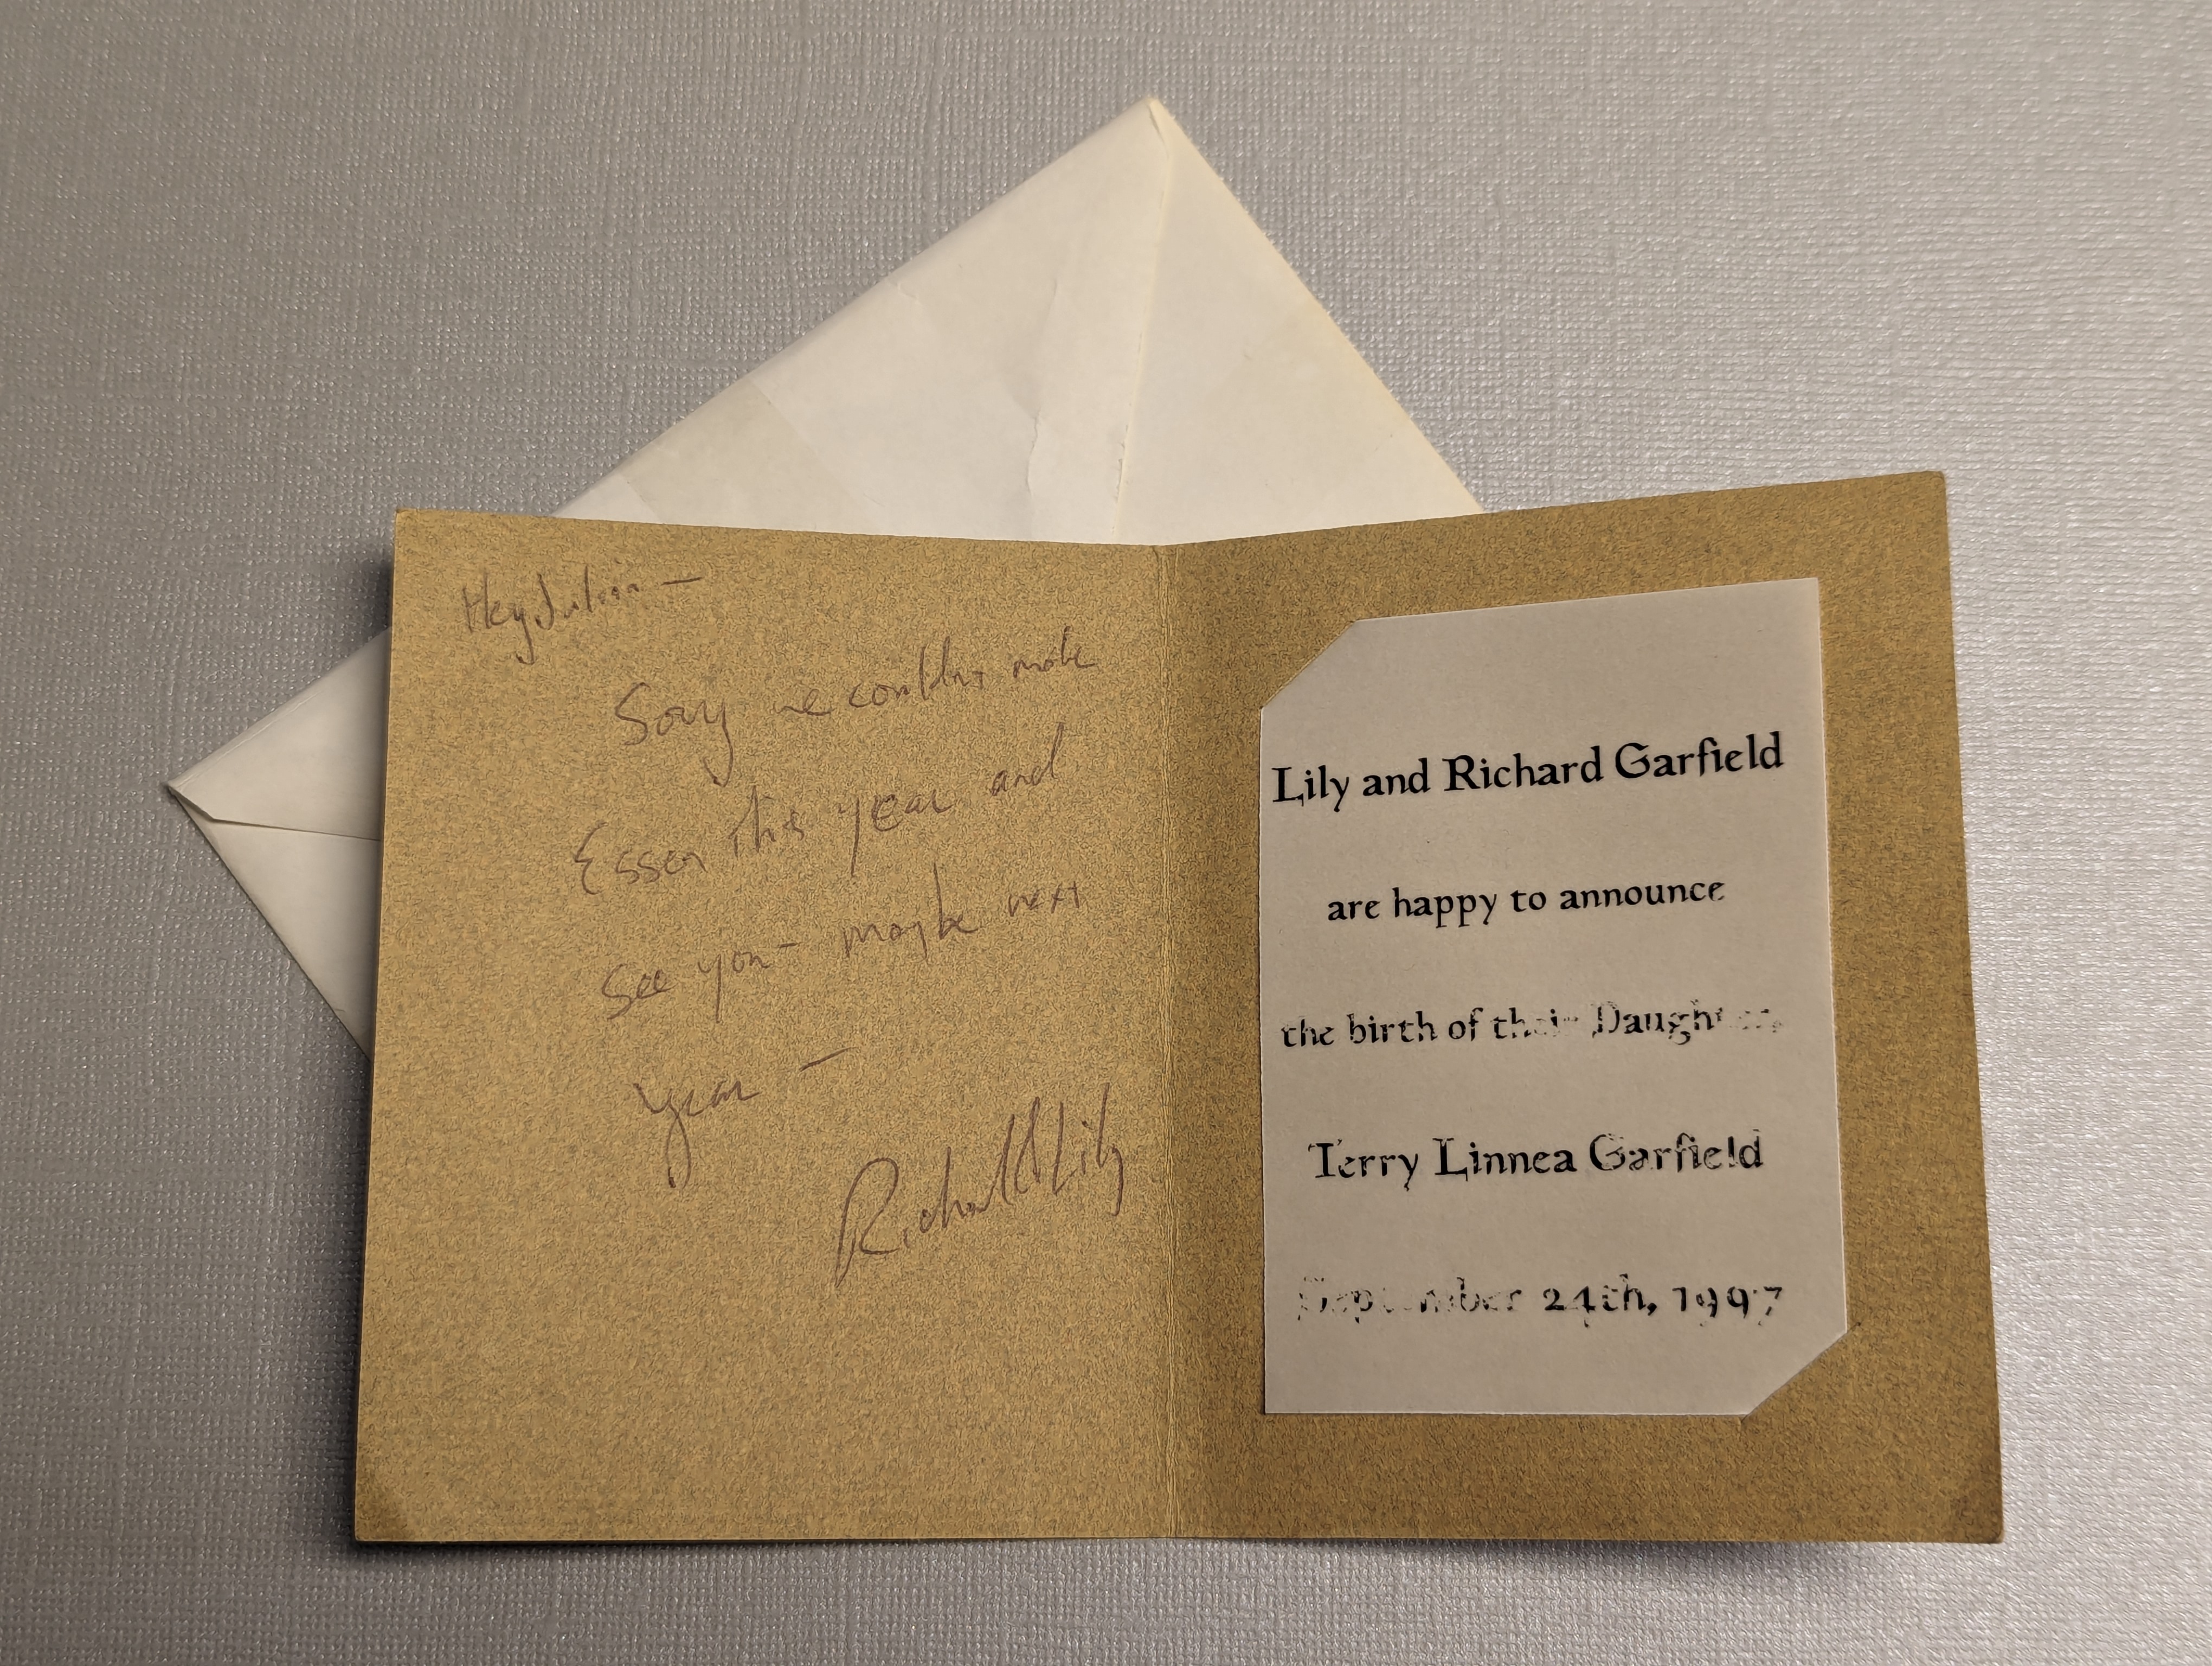 Hey Julian —
Sorry we couldn't make
Essen this year and
see you - maybe next
year —
Richard & Lily
Lily and Richard Garfield
are happy to announce
the birth of their Daughter,
Terry Linnea Garfield
September 24th, 1997